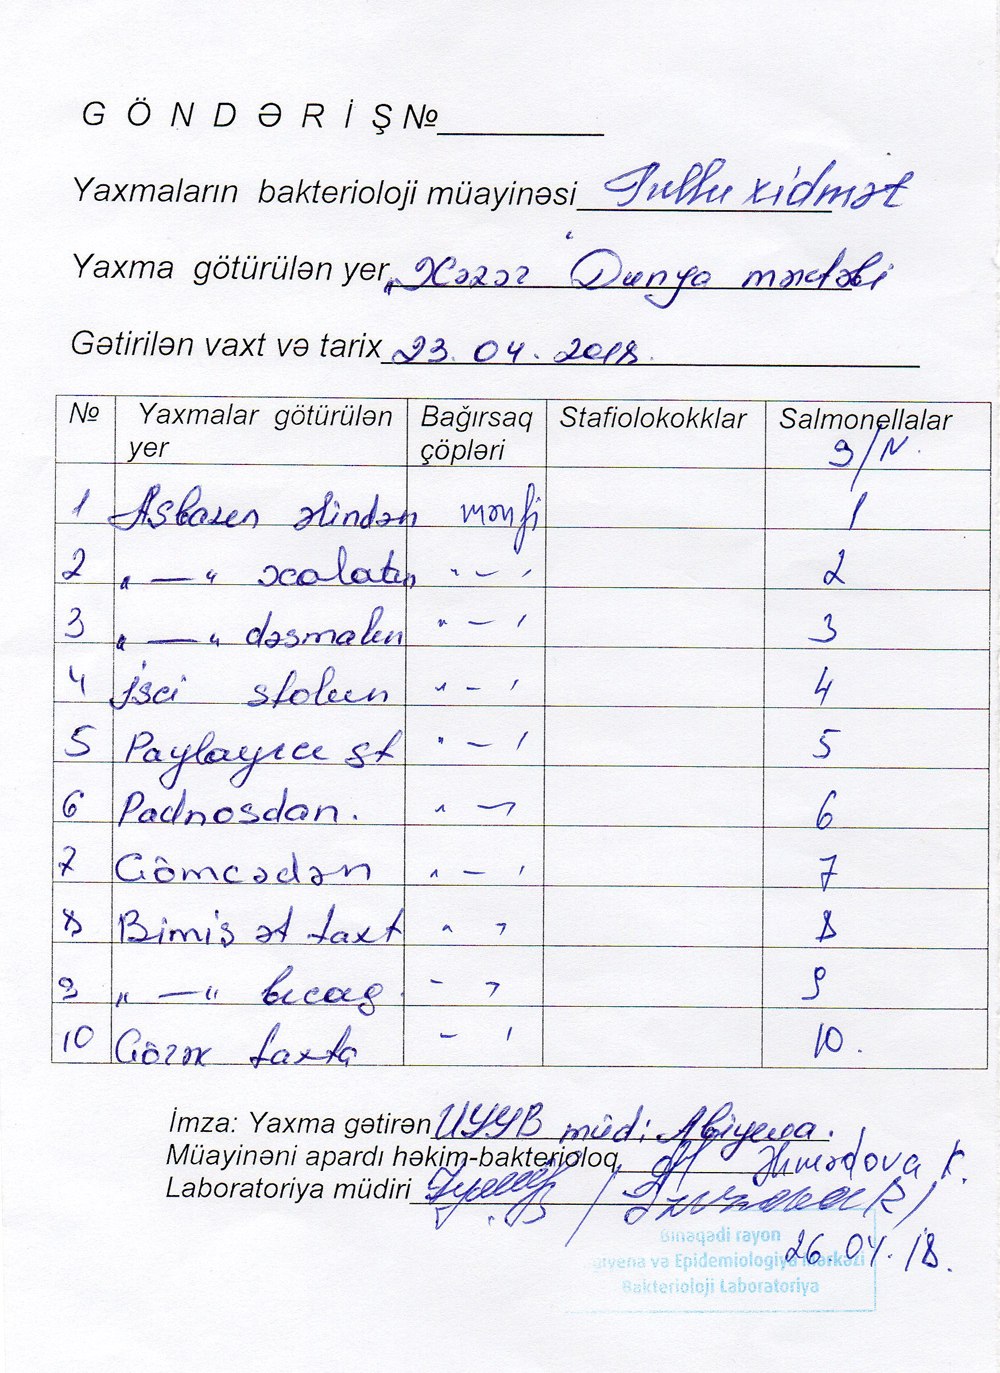 GÖNDƏRİŞ №
Yaxmaların bakterioloji müayinəsi Pullu xidmət
Yaxma götürülən yer "Xəzər Dunya məktəbi
Gətirilən vaxt və tarix 23.04.2018.
№ Yaxmalar götürülən yer Bağırsaq çöpləri Stafiolokokklar Salmonellalar
S/N.
1 Aşbazın əlindən mənfi 1
2 " — " xalatın " — " 2
3 " — " dəsmalın " — " 3
4 İşçi stolun " — " 4
5 Paylayıcı st " — " 5
6 Padnosdan. " — " 6
7 Çömçədən " — " 7
8 Bimiş ət taxt " " 8
9 " — " bıcag - " 9
10 Çörək taxta - " 10.
İmza: Yaxma gətirən UYYB müdi; Abiyeva.
Müayinəni apardı həkim-bakterioloq Əhmədova K.
Laboratoriya müdiri
Binəqədi rayon
Gigiyena və Epidemiologiya Mərkəzi
Bakterioloji Laboratoriya
26.04.18.